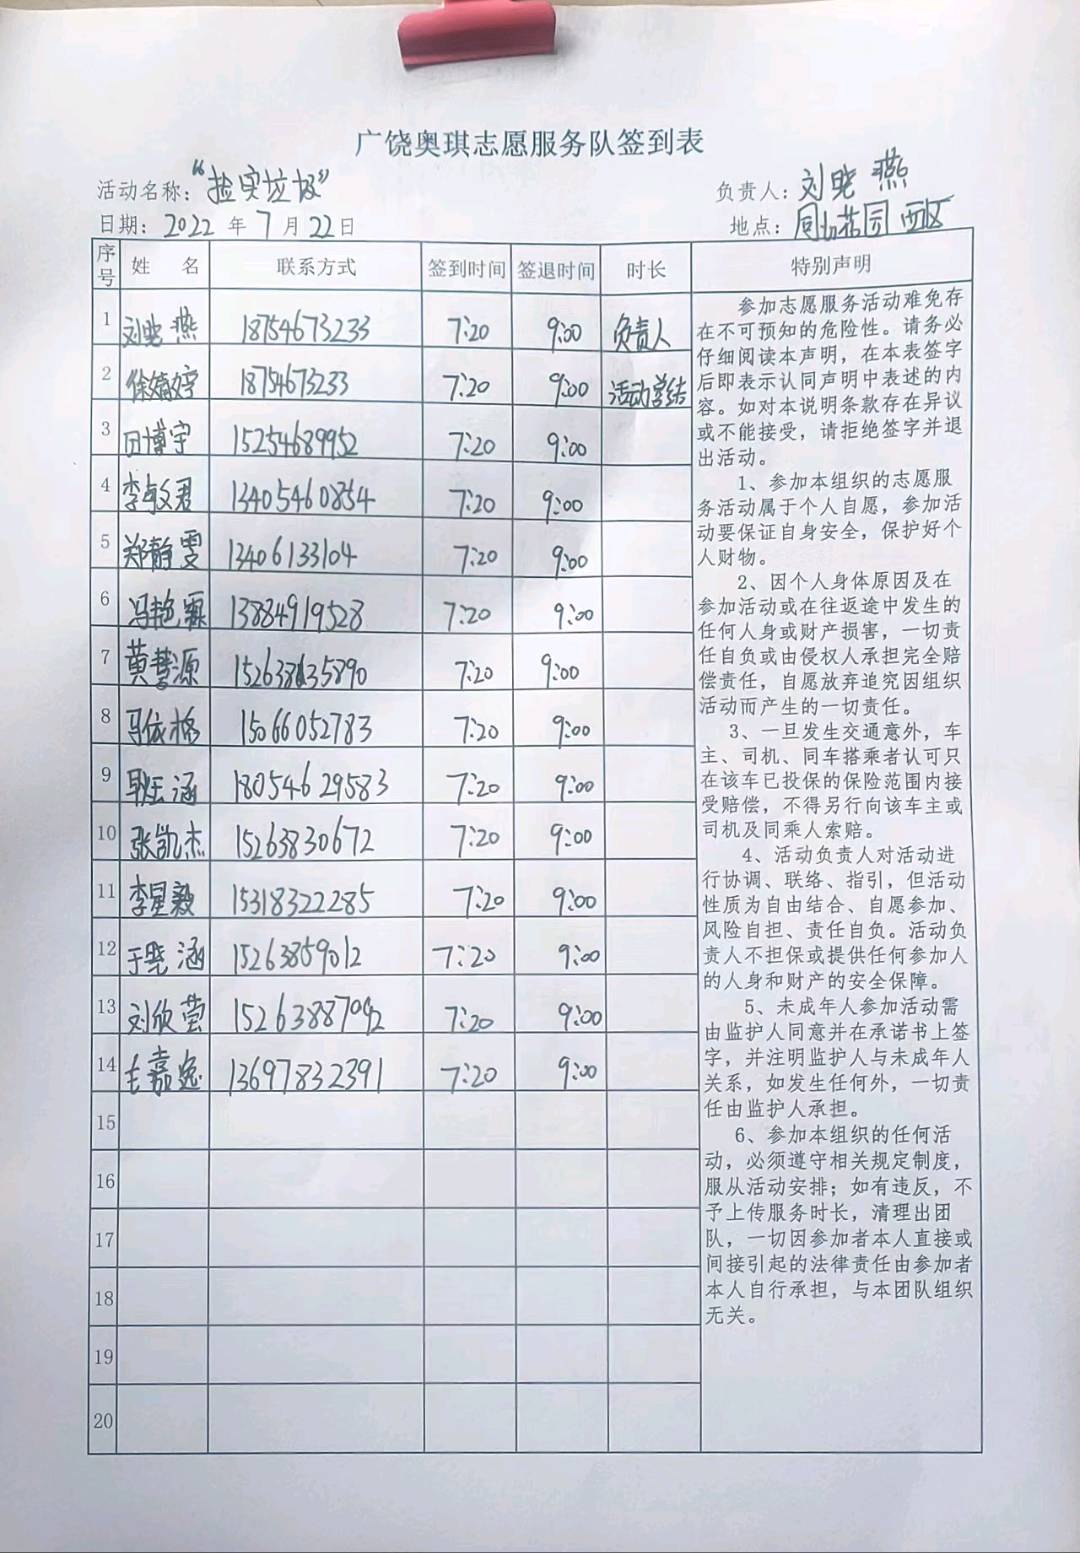 广饶奥琪志愿服务队签到表
活动名称：“捡实垃圾” 负责人：刘晓燕
日期：2022年7月22日 地点：同山花园西区
序号 姓名 联系方式 签到时间 签退时间 时长 特别声明
1 刘晓燕 18754673233 7:20 9:00 负责人
2 徐婧宇 18754673233 7:20 9:00 活动总结
3 田博宇 15254689952 7:20 9:00
4 李文君 13405460854 7:20 9:00
5 郑静雯 13406133104 7:20 9:00
6 冯艳霖 13884919528 7:20 9:00
7 黄慧源 15263835890 7:20 9:00
8 马依格 15066052783 7:20 9:00
9 涵 18054629583 7:20 9:00
10 张凯杰 15263830672 7:20 9:00
11 李星毅 15318322285 7:20 9:00
12 于晓涵 15263859012 7:20 9:00
13 刘欣莹 15263887092 7:20 9:00
14 嘉逸 13697832391 7:20 9:00
15
16
17
18
19
20
参加志愿服务活动难免存
在不可预知的危险性。请务必
仔细阅读本声明，在本表签字
后即表示认同声明中表述的内
容。如对本说明条款存在异议
或不能接受，请拒绝签字并退
出活动。
1、参加本组织的志愿服
务活动属于个人自愿，参加活
动要保证自身安全，保护好个
人财物。
2、因个人身体原因及在
参加活动或在往返途中发生的
任何人身或财产损害，一切责
任自负或由侵权人承担完全赔
偿责任，自愿放弃追究因组织
活动而产生的一切责任。
3、一旦发生交通意外，车
主、司机、同车搭乘者认可只
在该车已投保的保险范围内接
受赔偿，不得另行向该车主或
司机及同乘人索赔。
4、活动负责人对活动进
行协调、联络、指引，但活动
性质为自由结合、自愿参加、
风险自担、责任自负。活动负
责人不担保或提供任何参加人
的人身和财产的安全保障。
5、未成年人参加活动需
由监护人同意并在承诺书上签
字，并注明监护人与未成年人
关系，如发生任何外，一切责
任由监护人承担。
6、参加本组织的任何活
动，必须遵守相关规定制度，
服从活动安排；如有违反，不
予上传服务时长，清理出团
队，一切因参加者本人直接或
间接引起的法律责任由参加者
本人自行承担，与本团队组织
无关。